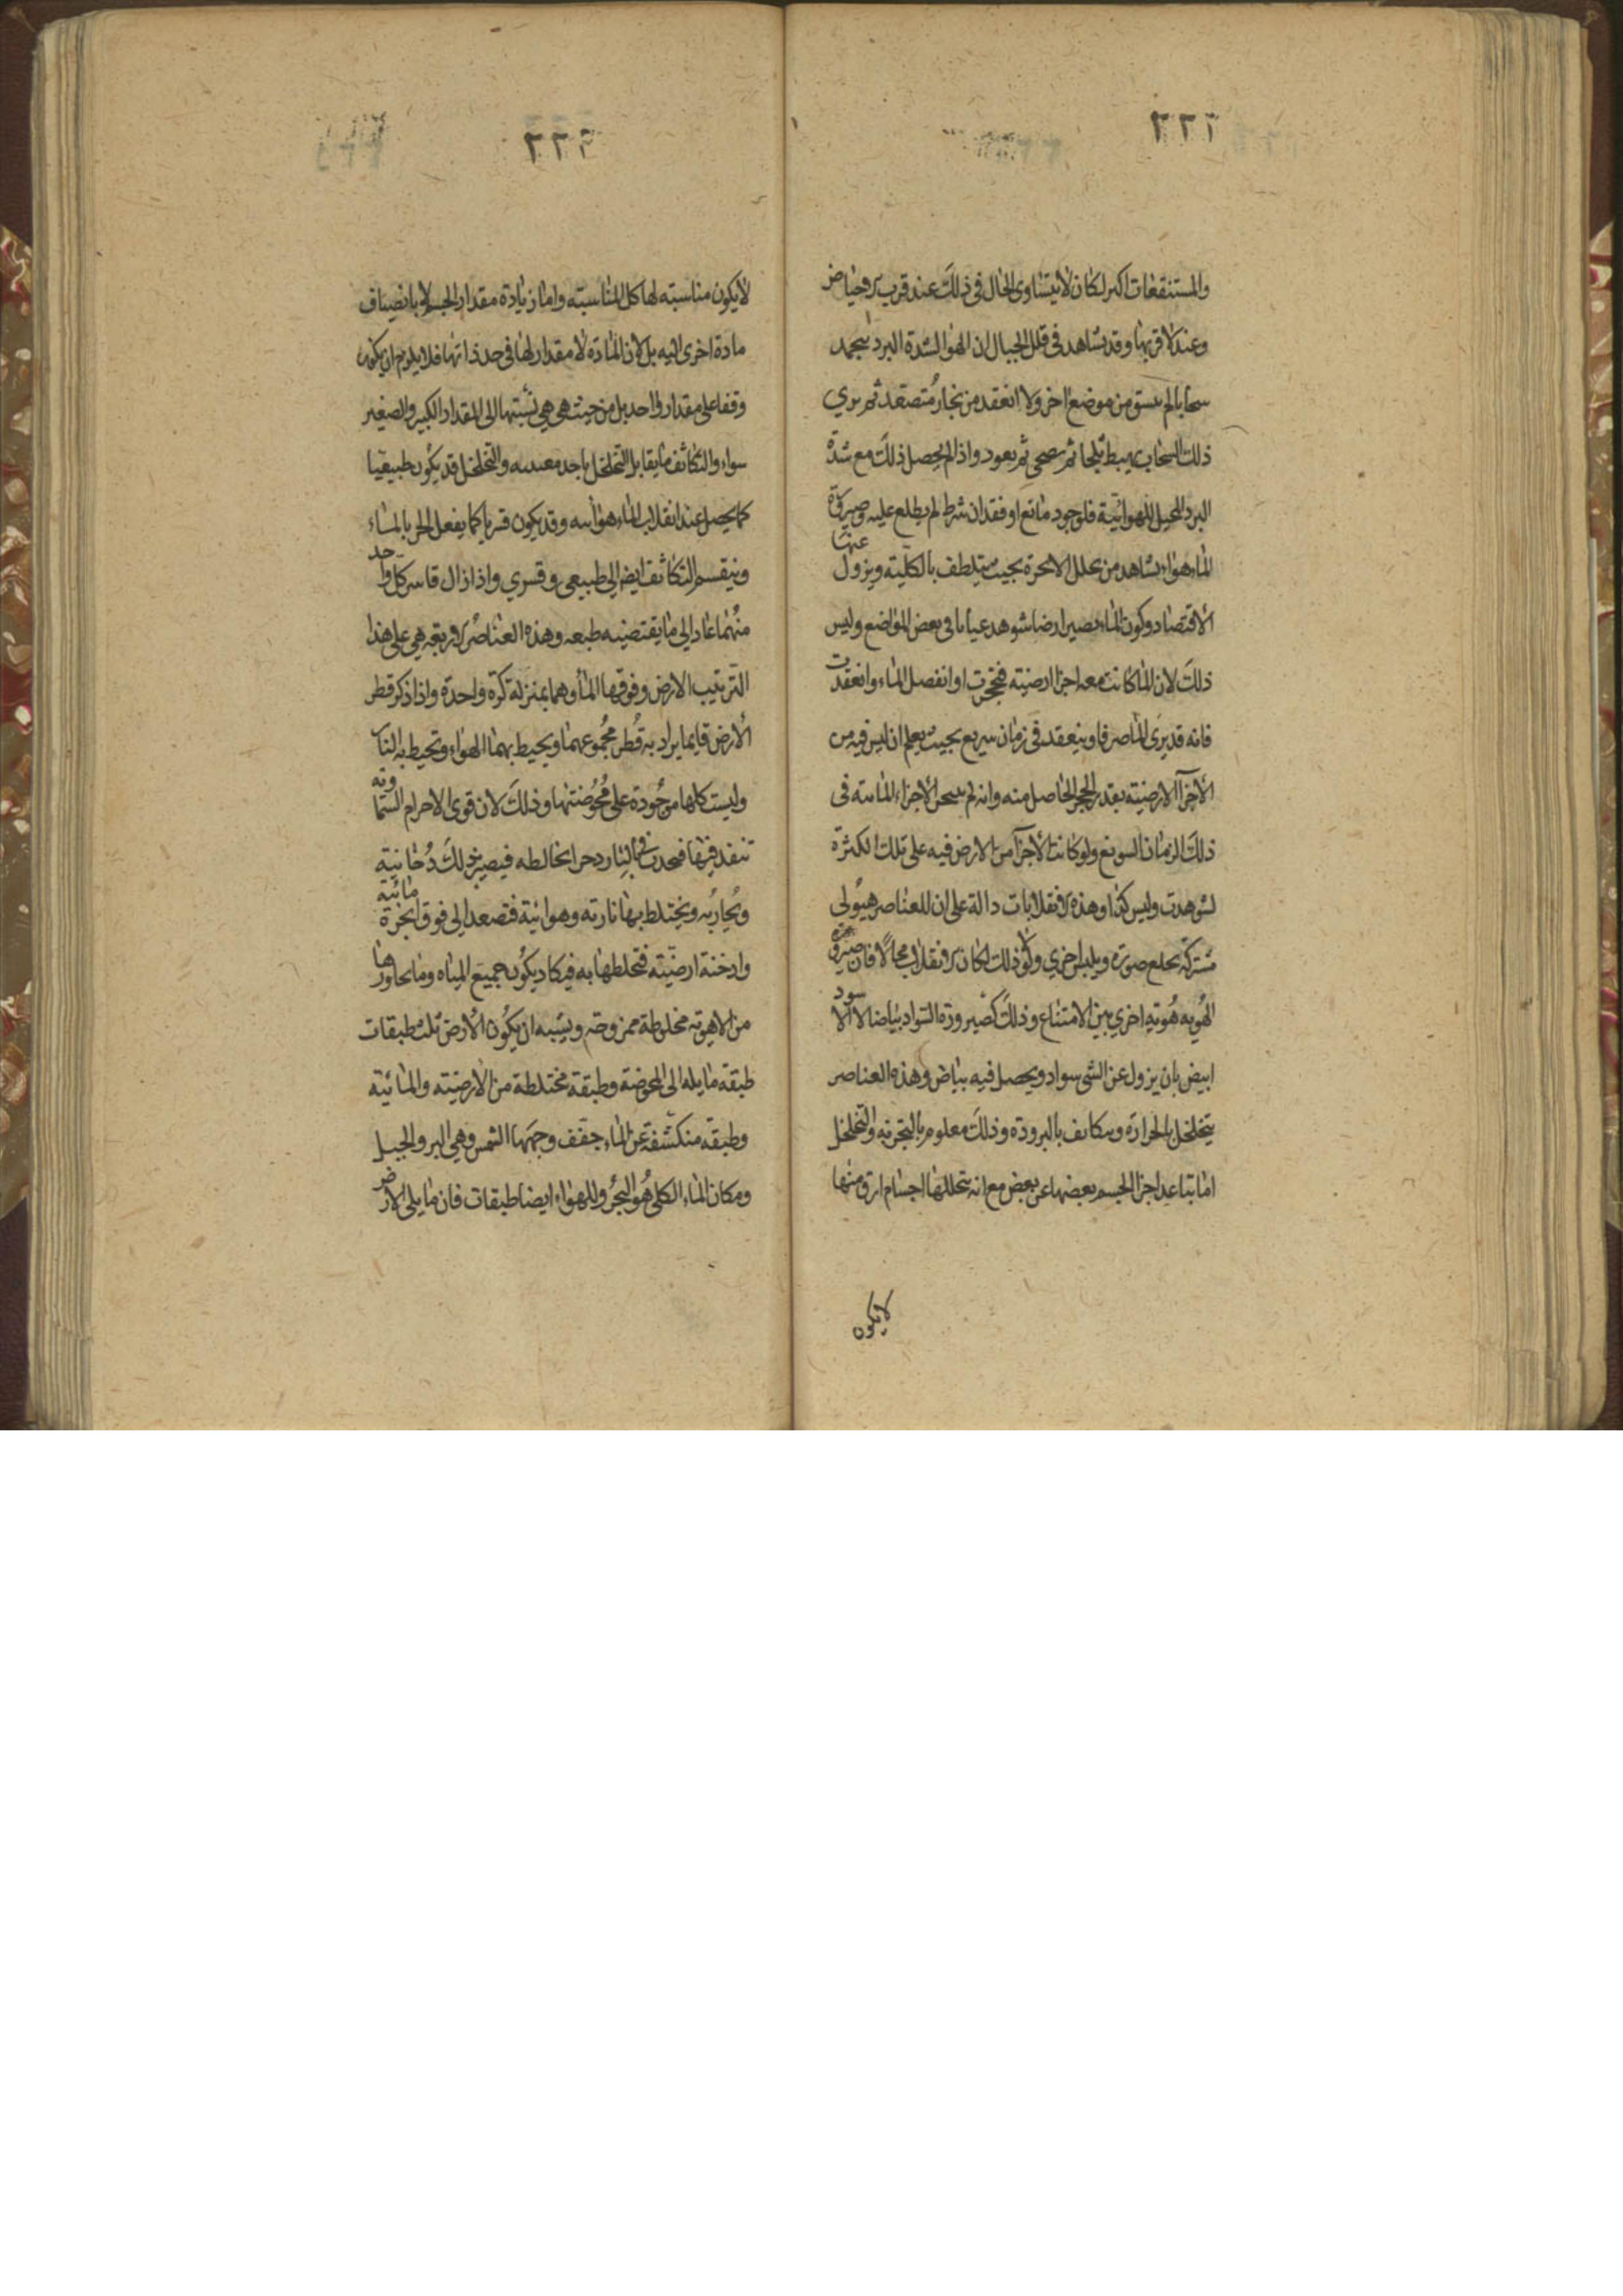 ٢٢٢
والمستنقعات اكبر لكان لا يتساوى الحال فى ذلك عند قرب الاحياض
وعند لا قربها وقد نشاهد فى قلل الجبال ان الهوا لشدة البرد يتجمد
سحابا لم ينسق من موضع اخر ولا انعقد من بخار متصعد ثم يرى
ذلك السحاب يهبط ثلجا ثم يصحى ثم يعود واذا لم يحصل ذلك مع شدة
البرد المحيل للهوائية فلوجود مانع او فقدان شرط لم يطلع عليه وصيرورة
الماء هواء يشاهد من تحلل الابخرة بحيث يتلطف بالكلية ويزول عنها
الاقتصاد وكون الماء يصير ارضا شوهد عيانا فى بعض المواضع وليس
ذلك لان الماء كانت معه اجزا ارضية فتحجرت او انفصل الماء وانعقدت
فانه قد يرى الماء صرفا وينعقد فى زمان سريع بحيث يعلم ان ليس فيه من
الاجزآ الارضية بقدر الحجر الحاصل منه وانه لم يتبخر الاجزاء المائية فى
ذلك الزمان السريع ولو كانت الاجزآ من الارض فيه على تلك الكثرة
لشوهدت وليس كذا وهذه الانقلابات دالة على ان للعناصر هيولى
مشتركة تخلع صورة ويلبس اخرى ولولا ذلك لكان الانقلاب محالا فان صيرورة
الهوية هوية اخرى بين الامتناع وذلك كصيرورة السواد بياضا لا الاسود
ابيض بان يزول عن الشى سواد ويحصل فيه بياض وهذه العناصر
يتخلخل بالحرارة ويتكاثف بالبرودة وذلك معلوم بالتجربة والتخلخل
اما بتباعد اجزا الجسم بعضها عن بعض مع انه يتخللها اجسام ارق منها
لا يكون
٢٢٣
لا يكون مناسبته لها كل المناسبة واما زيادة مقدار الجسم لا بانضياف
مادة اخرى اليه بل لان المادة لا مقدار لها فى حد ذاتها فلا يلزم ان يكون
وقفا على مقدار واحد بل من حيث هى هى نسبتها الى المقدار الكبير والصغير
سواء والتكاثف ما يقابل التخلخل باحد معنييه والتخلخل قد يكون طبيعيا
كما يحصل عند انقلاب الماء هوائيه وقد يكون قسريا كما يفعل الحر بالماء
وينقسم التكاثف ايضا الى طبيعى وقسرى واذا زال قاسر كل واحد
منهما عاد الى ما يقتضيه طبعه وهذه العناصر الاربعة هى على هذا
الترتيب الارض وفوقها الماء وهما بمنزلة كرة واحدة واذا ذكر قطر
الارض فانما يراد به قطر مجموعهما ويحيط بهما الهواء وتحيط به النار
وليست كلها موجودة على محوضتها وذلك لان قوى الاجرام السماوية
تنفذ فيها فتحدث فى البارد حرا يخالطه فيصير بذلك دخانية
وبخارية ويختلط بها نارية وهوائية فتصعد الى فوق ابخرة مائية
وادخنة ارضية فتخلطها به فيكاد يكون جميع المياه وما يجاورها
من الاهوية مخلوطة ممزوجة ويشبه ان يكون الارض ثلث طبقات
طبقة مايله الى المحوضة وطبقة مختلطة من الارضية والمائية
وطبقة منكشفة عن الماء جفف وجهها الشمس وهى البر والجبل
ومكان الماء الكلى هو البحر وللهواء ايضا طبقات فان ما يلى الارض